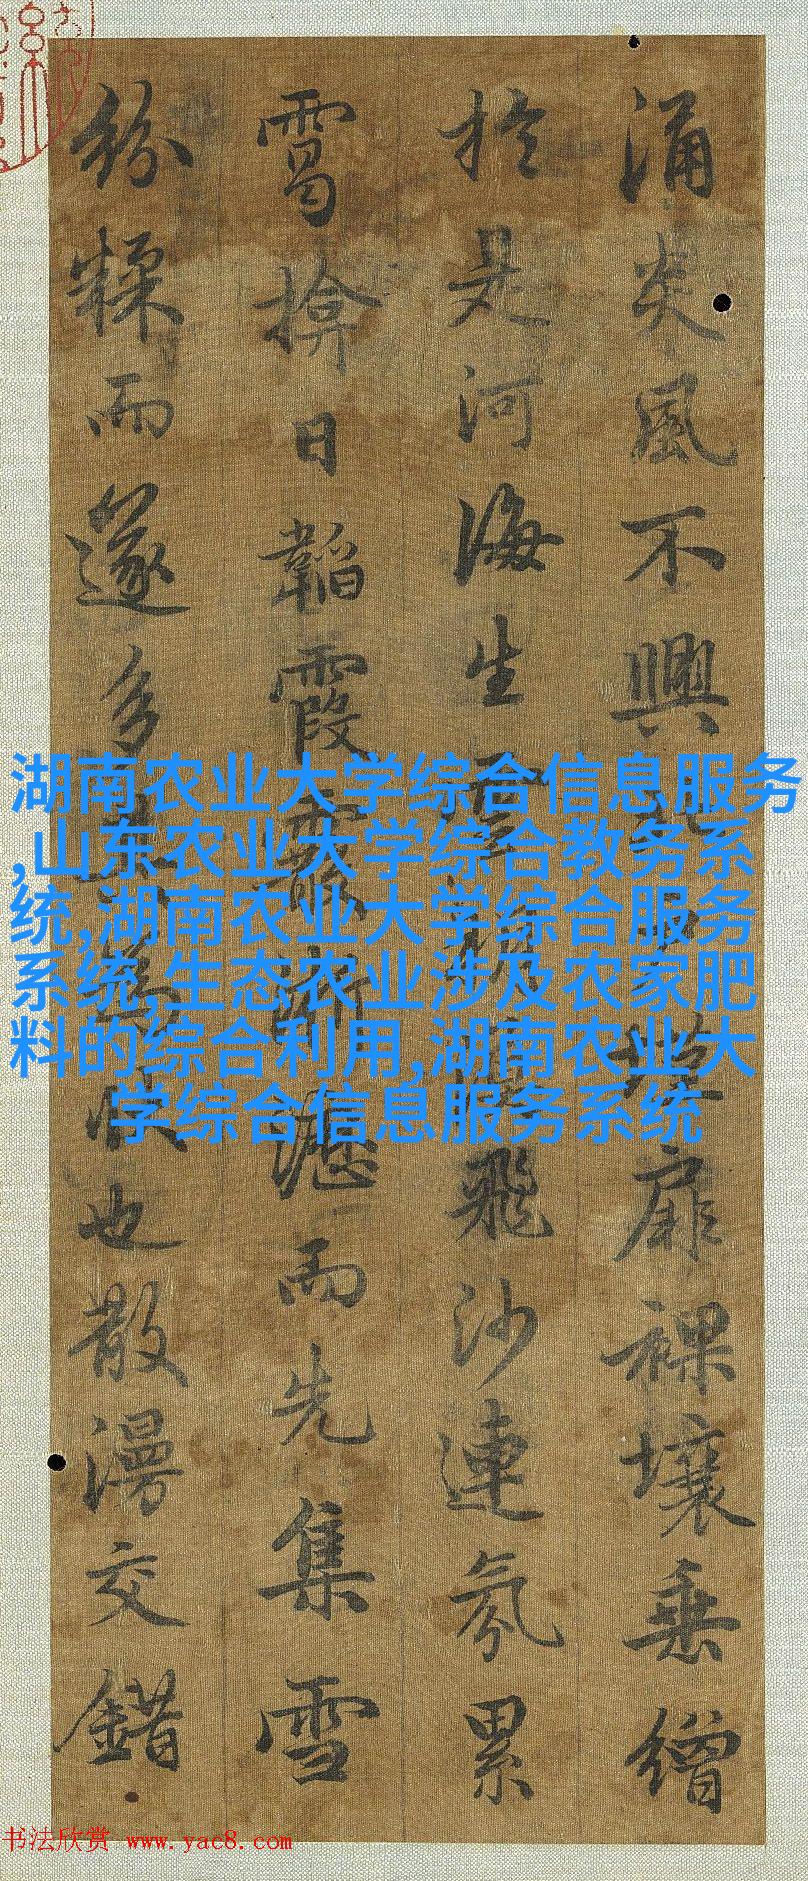 涌炎風不興北戶墐扉裸壤垂繒
於是河海生雲朔漠飛沙連氛累
靄揜日韜霞霰淅瀝而先集雪
紛糅而遂多其為狀也散漫交錯
湖南农业大学综合信息服务
,山东农业大学综合教务系
统,湖南农业大学综合服务
系统,生态农业涉及农家肥
料的综合利用,湖南农业大
学综合信息服务系统
书法欣赏 www.yac8.com